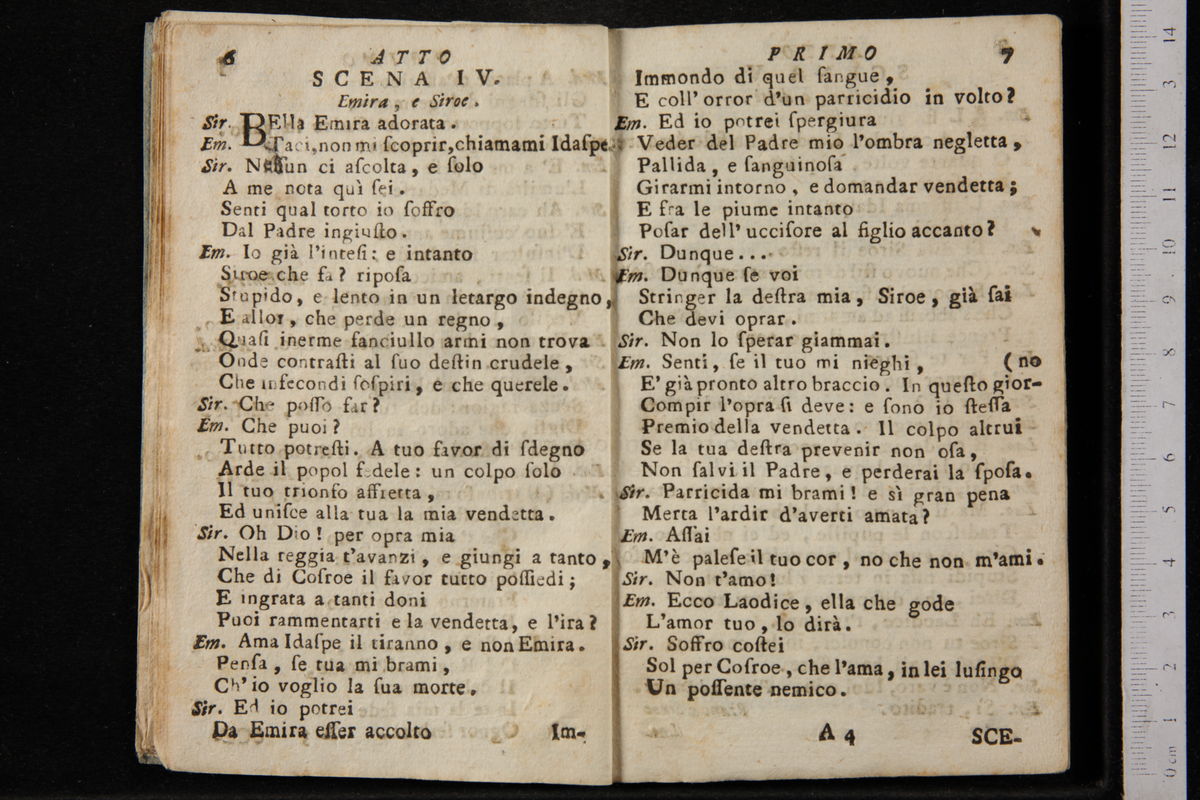 6 ATTO
SCENA IV.
Emira, e Siroe.
Sir. BElla Emira adorata.
Em. Taci, non mi ſcoprir, chiamami Idaſpe.
Sir. Neſſun ci aſcolta, e ſolo
A me nota quì ſei.
Senti qual torto io ſoffro
Dal Padre ingiuſto.
Em. Io già l'inteſi: e intanto
Siroe che fa? ripoſa
Stupido, e lento in un letargo indegno,
E allor, che perde un regno,
Quaſi inerme fanciullo armi non trova
Onde contraſti al ſuo deſtin crudele,
Che infecondi ſoſpiri, e che querele.
Sir. Che poſſo far?
Em. Che puoi?
Tutto potreſti. A tuo favor di ſdegno
Arde il popol fedele: un colpo ſolo
Il tuo trionfo affretta,
Ed uniſce alla tua la mia vendetta.
Sir. Oh Dio! per opra mia
Nella reggia t'avanzi, e giungi a tanto,
Che di Coſroe il favor tutto poſſiedi;
E ingrata a tanti doni
Puoi rammentarti e la vendetta, e l'ira?
Em. Ama Idaſpe il tiranno, e non Emira.
Penſa, ſe tua mi brami,
Ch'io voglio la ſua morte.
Sir. Ed io potrei
Da Emira eſſer accolto
Im-
PRIMO 7
Immondo di quel ſangue,
E coll'orror d'un parricidio in volto?
Em. Ed io potrei ſpergiura
Veder del Padre mio l'ombra negletta,
Pallida, e ſanguinoſa
Girarmi intorno, e domandar vendetta;
E fra le piume intanto
Poſar dell'ucciſore al figlio accanto?
Sir. Dunque...
Em. Dunque ſe voi
Stringer la deſtra mia, Siroe, già ſai
Che devi oprar.
Sir. Non lo ſperar giammai.
Em. Senti, ſe il tuo mi nieghi, (no
E' già pronto altro braccio. In queſto gior-
Compir l'opra ſi deve: e ſono io ſteſſa
Premio della vendetta. Il colpo altrui
Se la tua deſtra prevenir non oſa,
Non ſalvi il Padre, e perderai la ſpoſa.
Sir. Parricida mi brami! e sì gran pena
Merta l'ardir d'averti amata?
Em. Aſſai
M'è paleſe il tuo cor, no che non m'ami.
Sir. Non t'amo!
Em. Ecco Laodice, ella che gode
L'amor tuo, lo dirà.
Sir. Soffro coſtei
Sol per Coſroe, che l'ama, in lei luſingo
Un poſſente nemico.
A 4 SCE-
14
13
12
11
10
9
8
7
6
5
4
3
2
1
0 cm